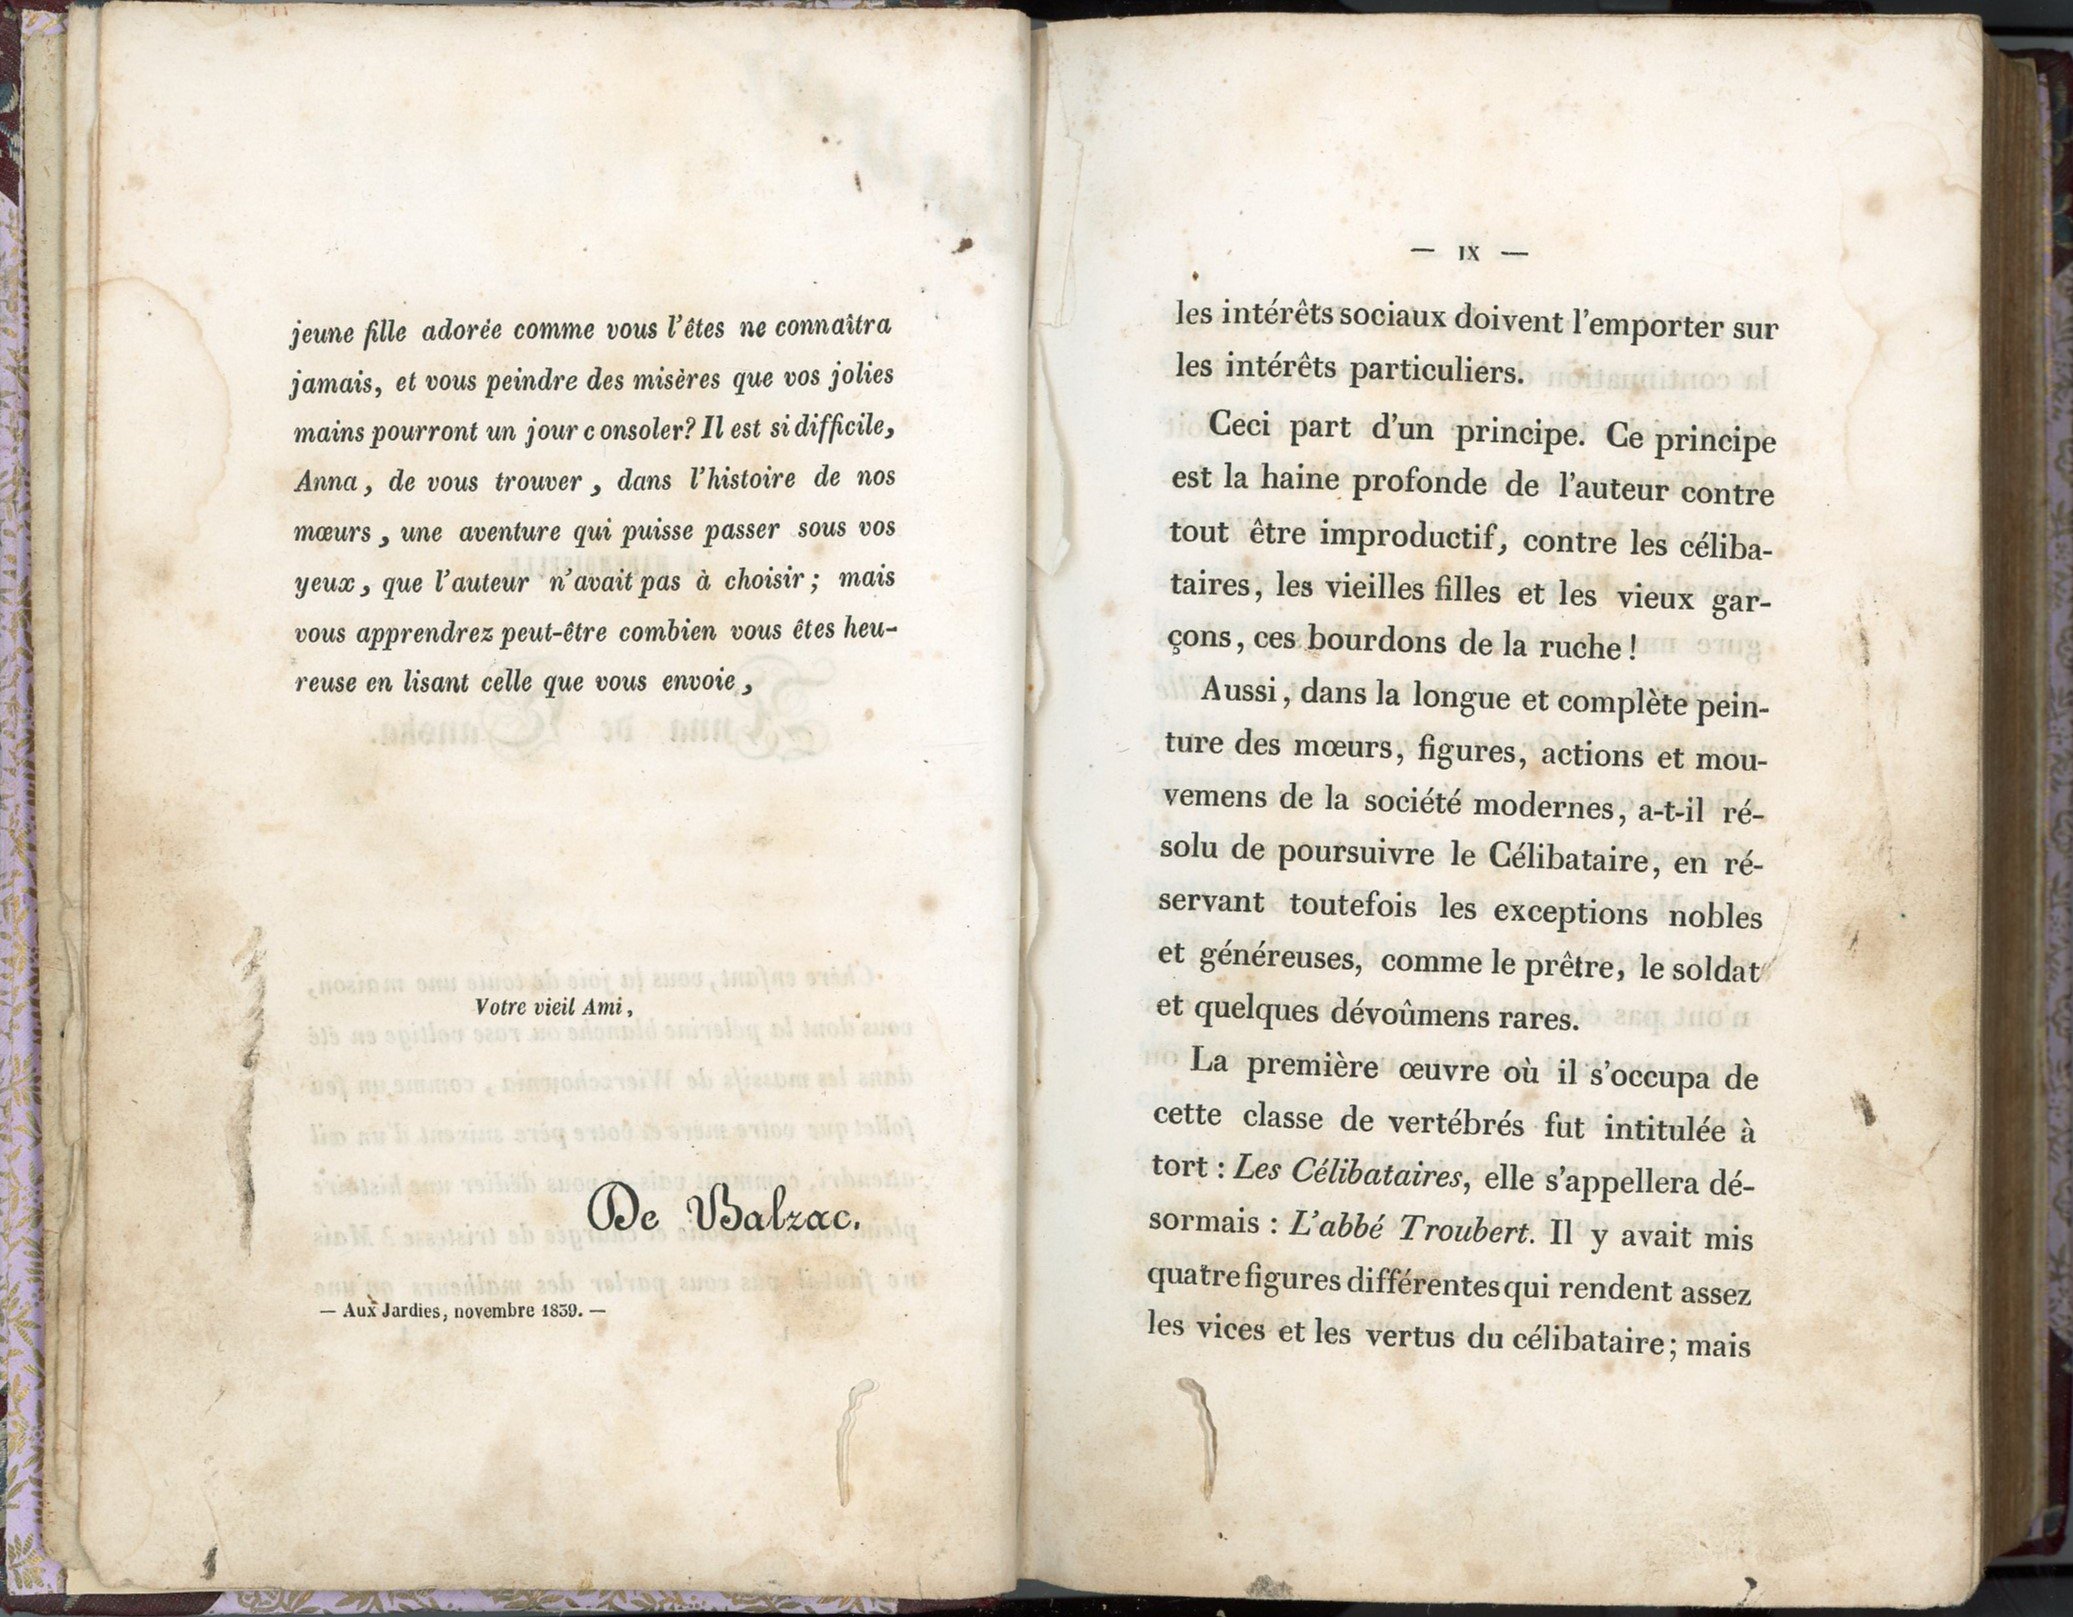 jeune fille adorée comme vous l'êtes ne connaîtra
jamais, et vous peindre des misères que vos jolies
mains pourront un jour consoler? Il est si difficile,
Anna, de vous trouver, dans l'histoire de nos
mœurs, une aventure qui puisse passer sous vos
yeux, que l'auteur n'avait pas à choisir; mais
vous apprendrez peut-être combien vous êtes heu-
reuse en lisant celle que vous envoie,
Votre vieil Ami,
De Balzac.
— Aux Jardies, novembre 1839. —
— IX —
les intérêts sociaux doivent l'emporter sur
les intérêts particuliers.
Ceci part d'un principe. Ce principe
est la haine profonde de l'auteur contre
tout être improductif, contre les céliba-
taires, les vieilles filles et les vieux gar-
çons, ces bourdons de la ruche!
Aussi, dans la longue et complète pein-
ture des mœurs, figures, actions et mou-
vemens de la société modernes, a-t-il ré-
solu de poursuivre le Célibataire, en ré-
servant toutefois les exceptions nobles
et généreuses, comme le prêtre, le soldat
et quelques dévoûmens rares.
La première œuvre où il s'occupa de
cette classe de vertébrés fut intitulée à
tort : Les Célibataires, elle s'appellera dé-
sormais : L'abbé Troubert. Il y avait mis
quatre figures différentes qui rendent assez
les vices et les vertus du célibataire; mais